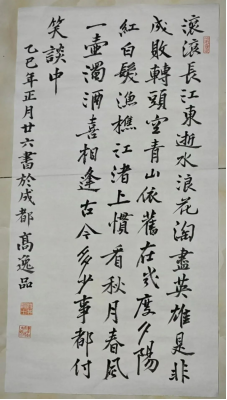 滚滚長江東逝水浪花淘盡英雄是非
成敗轉頭空青山依舊在幾度夕陽
紅白髮漁樵江渚上慣看秋月春風
一壺濁酒喜相逢古今多少事都付
笑談中
乙巳年正月廿六書於成都高逸品